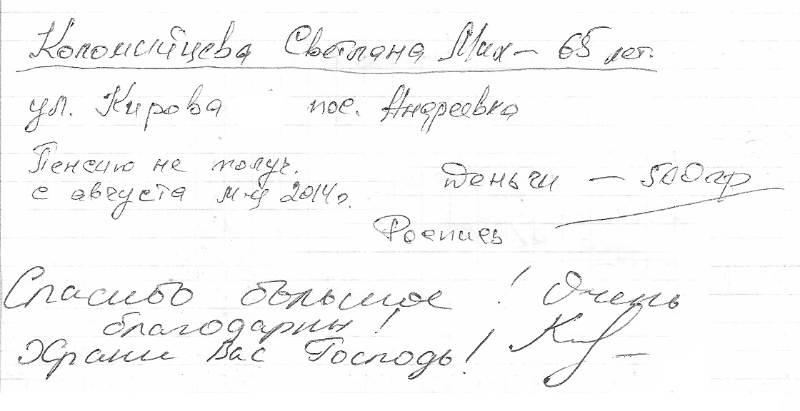 Коломийцева Светлана Мих – 65 лет.
ул. Кирова пос. Андреевка
Пенсию не получ.
с августа м-ц 2014г.
Деньги – 500гр
Роспись
Спасибо большое! Очень
благодарны!
Храни Вас Господь!